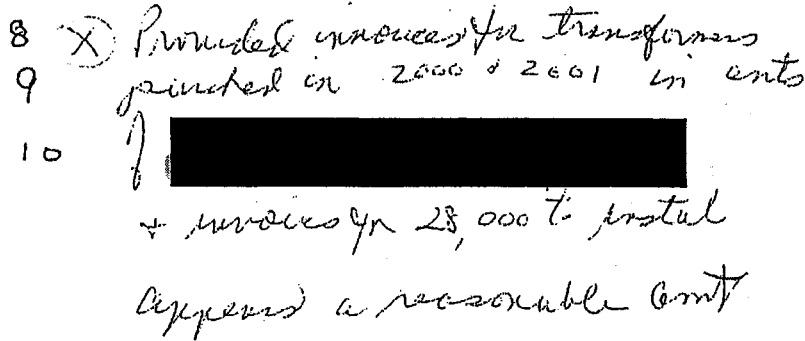 8 X Provided invoices for transformers
9 purchased in 2000 & 2001 in amts
10 of
+ invoices for 28,000 to instal
appears a reasonable amt